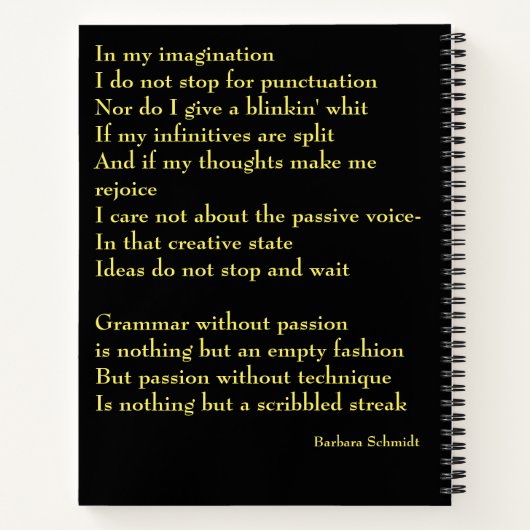 In my imagination
I do not stop for punctuation
Nor do I give a blinkin' whit
If my infinitives are split
And if my thoughts make me
rejoice
I care not about the passive voice-
In that creative state
Ideas do not stop and wait
Grammar without passion
is nothing but an empty fashion
But passion without technique
Is nothing but a scribbled streak
Barbara Schmidt